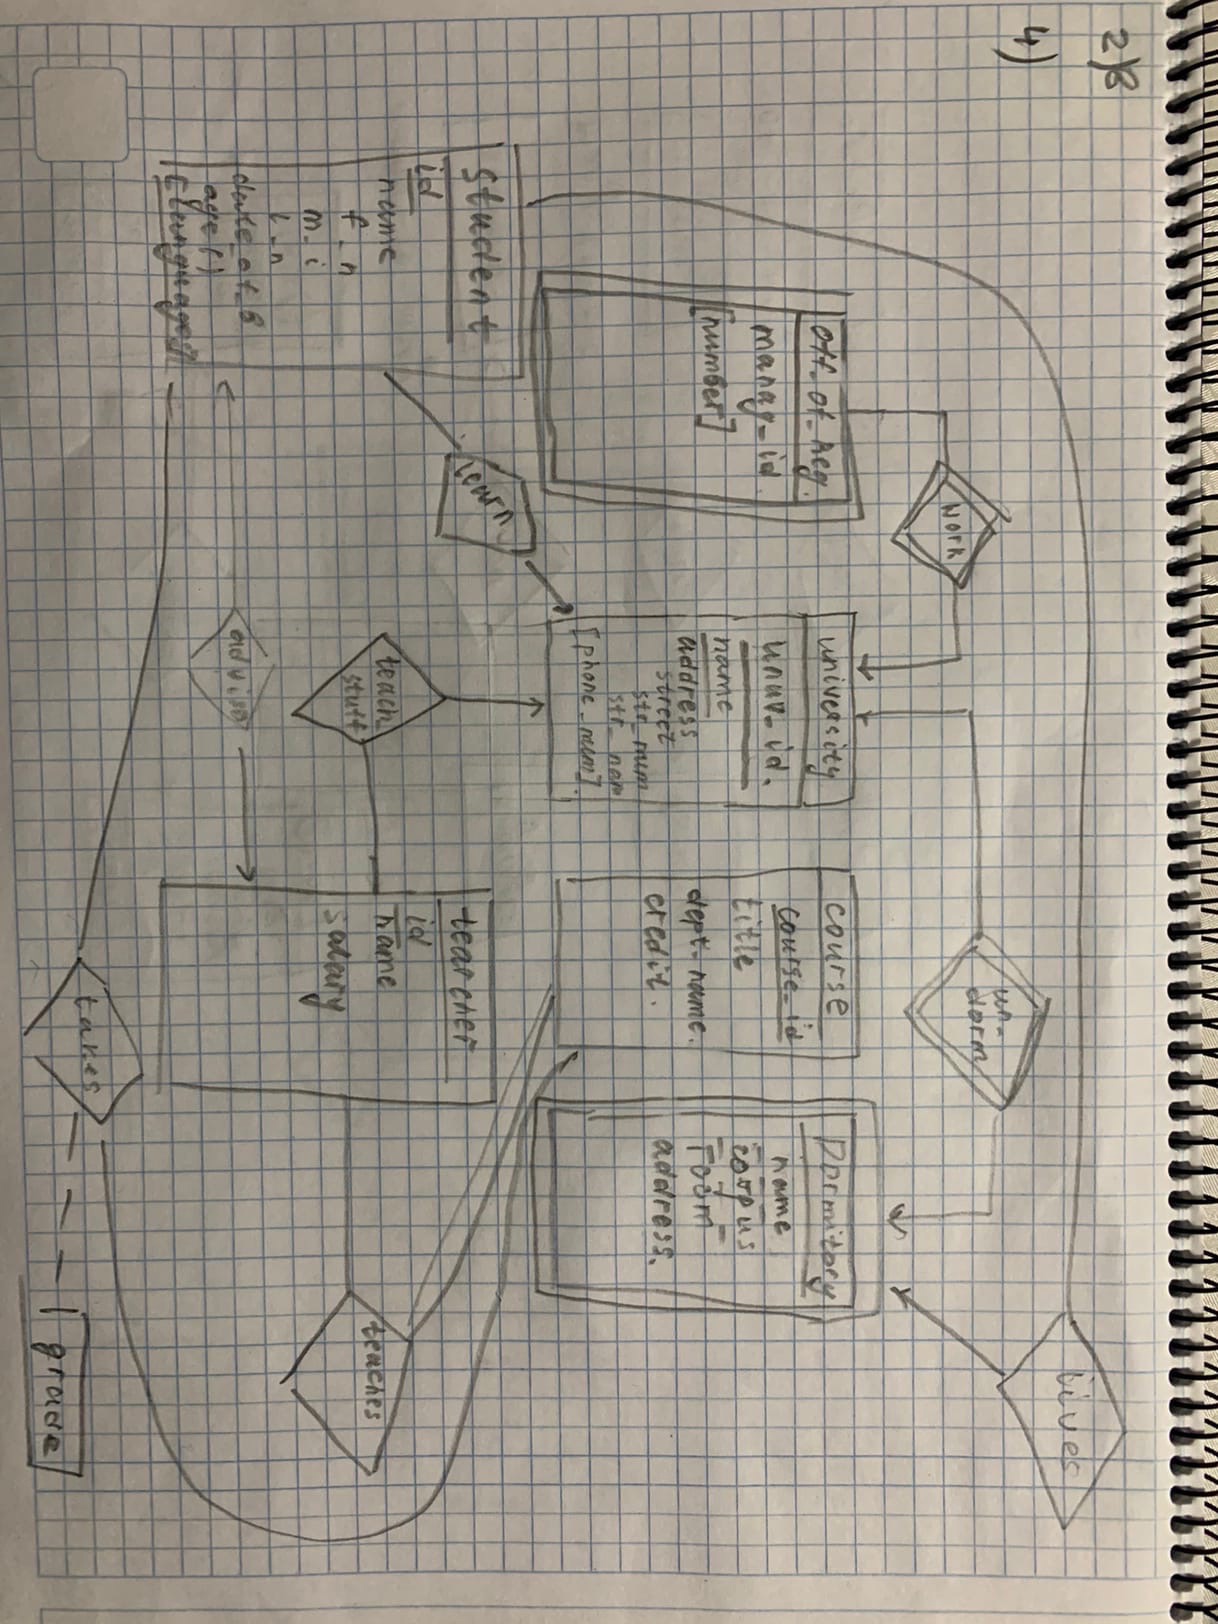 2)B
4)
lives
un-
dorm
work
Off_of_Reg.
manag_id
[number]
university
unuv_id.
name
address
street
str_num
str_nam
[phone_num].
course
course_id
title
dept_name.
credit.
Dormitory
name
corpus
room
address.
student
id
name
f_n
m_i
l_n
date_of_B
age()
[language]
learn
teach
stuff
tearcher
id
name
salary
teaches
advise
takes
grade